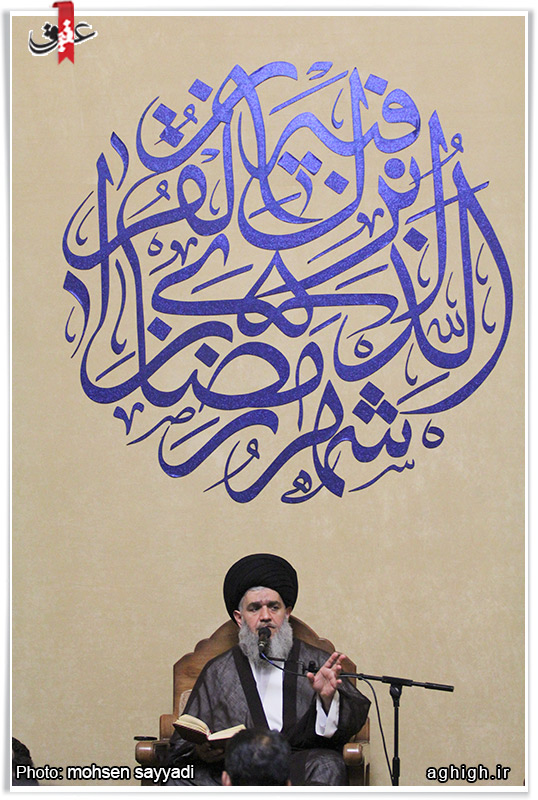 عقیق
شهر رمضان الذی انزل فیه القرآن هدی للناس
Photo: mohsen sayyadi
aghigh.ir